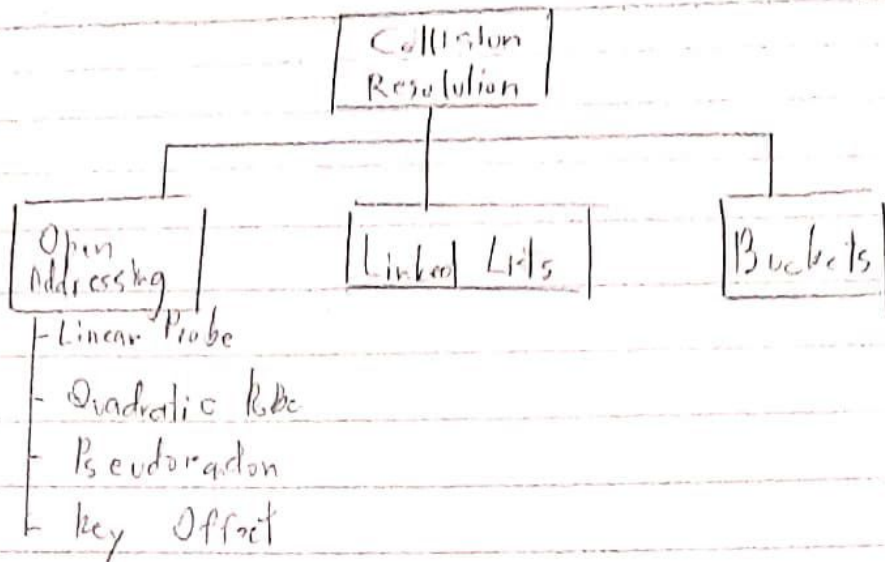 Collision
Resolution
Open
Addressing
Linked Lists
Buckets
- Linear Probe
- Quadratic Probe
- Pseudoradon
- Key Offset